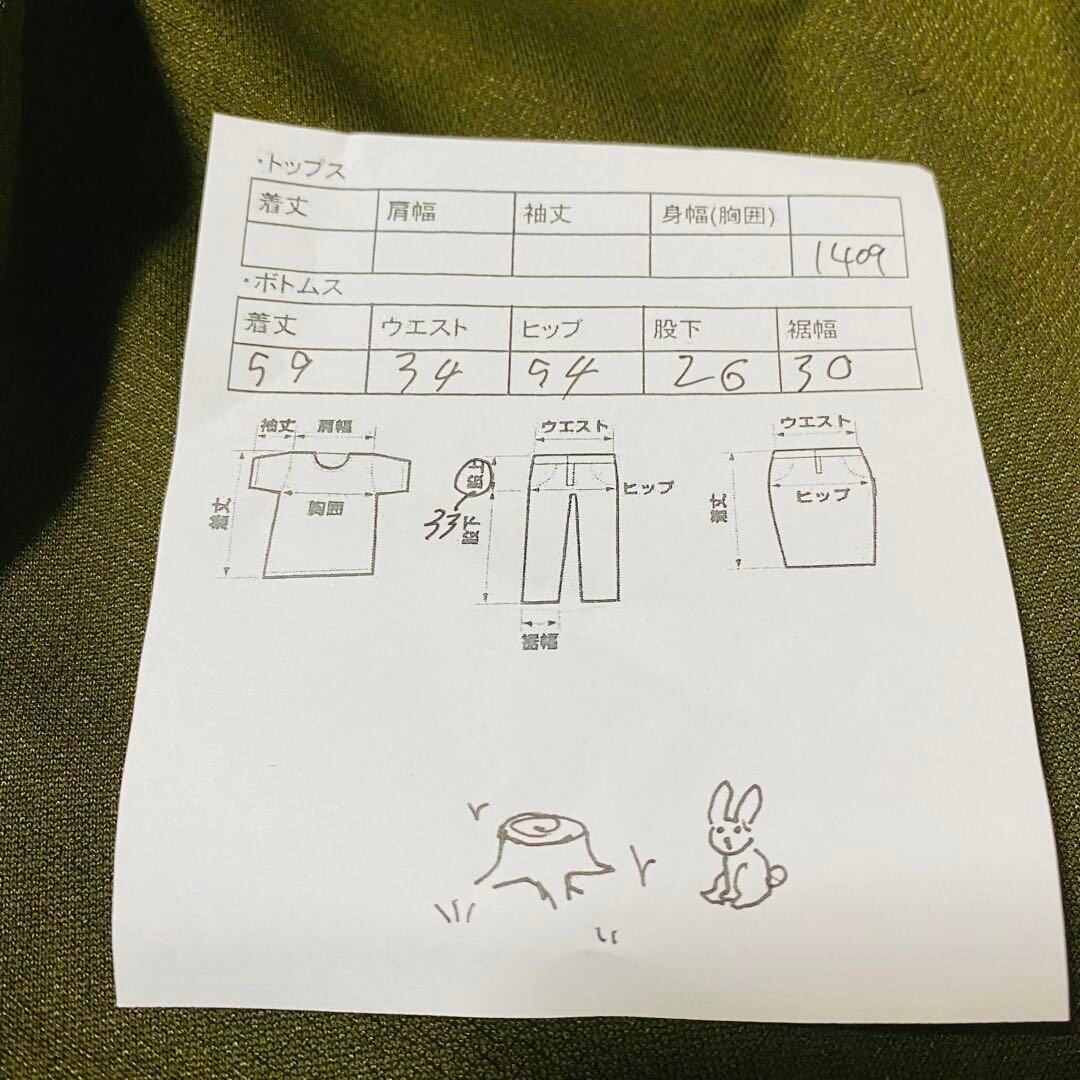 ・トップス
着丈 肩幅 袖丈 身幅(胸囲)
1409
・ボトムス
着丈 ウエスト ヒップ 股下 裾幅
59 34 54 26 30
袖丈 肩幅
着丈
胸囲
ウエスト
股上
33
股下
ヒップ
裾幅
ウエスト
着丈
ヒップ